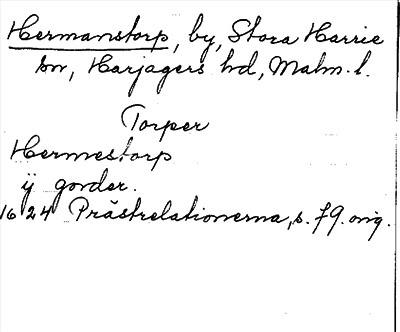 Hermanstorp, by, Stora Harrie
sn, Harjagers hd, Malm. l.
Torper
Hermestorp
ij gorder.
1624 Prästrelationerna, s. 79. orig.